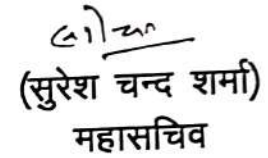 (सुरेश चन्द शर्मा)
महासचिव